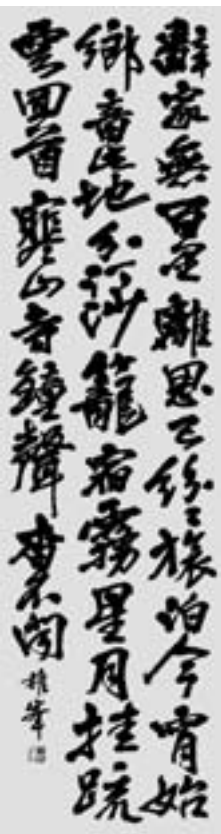 辭家無百里離思已紛紛旅泊今宵始
鄉音此地分河沙籠宿霧星月挂疏
雲回首寒山寺鐘聲杳不聞